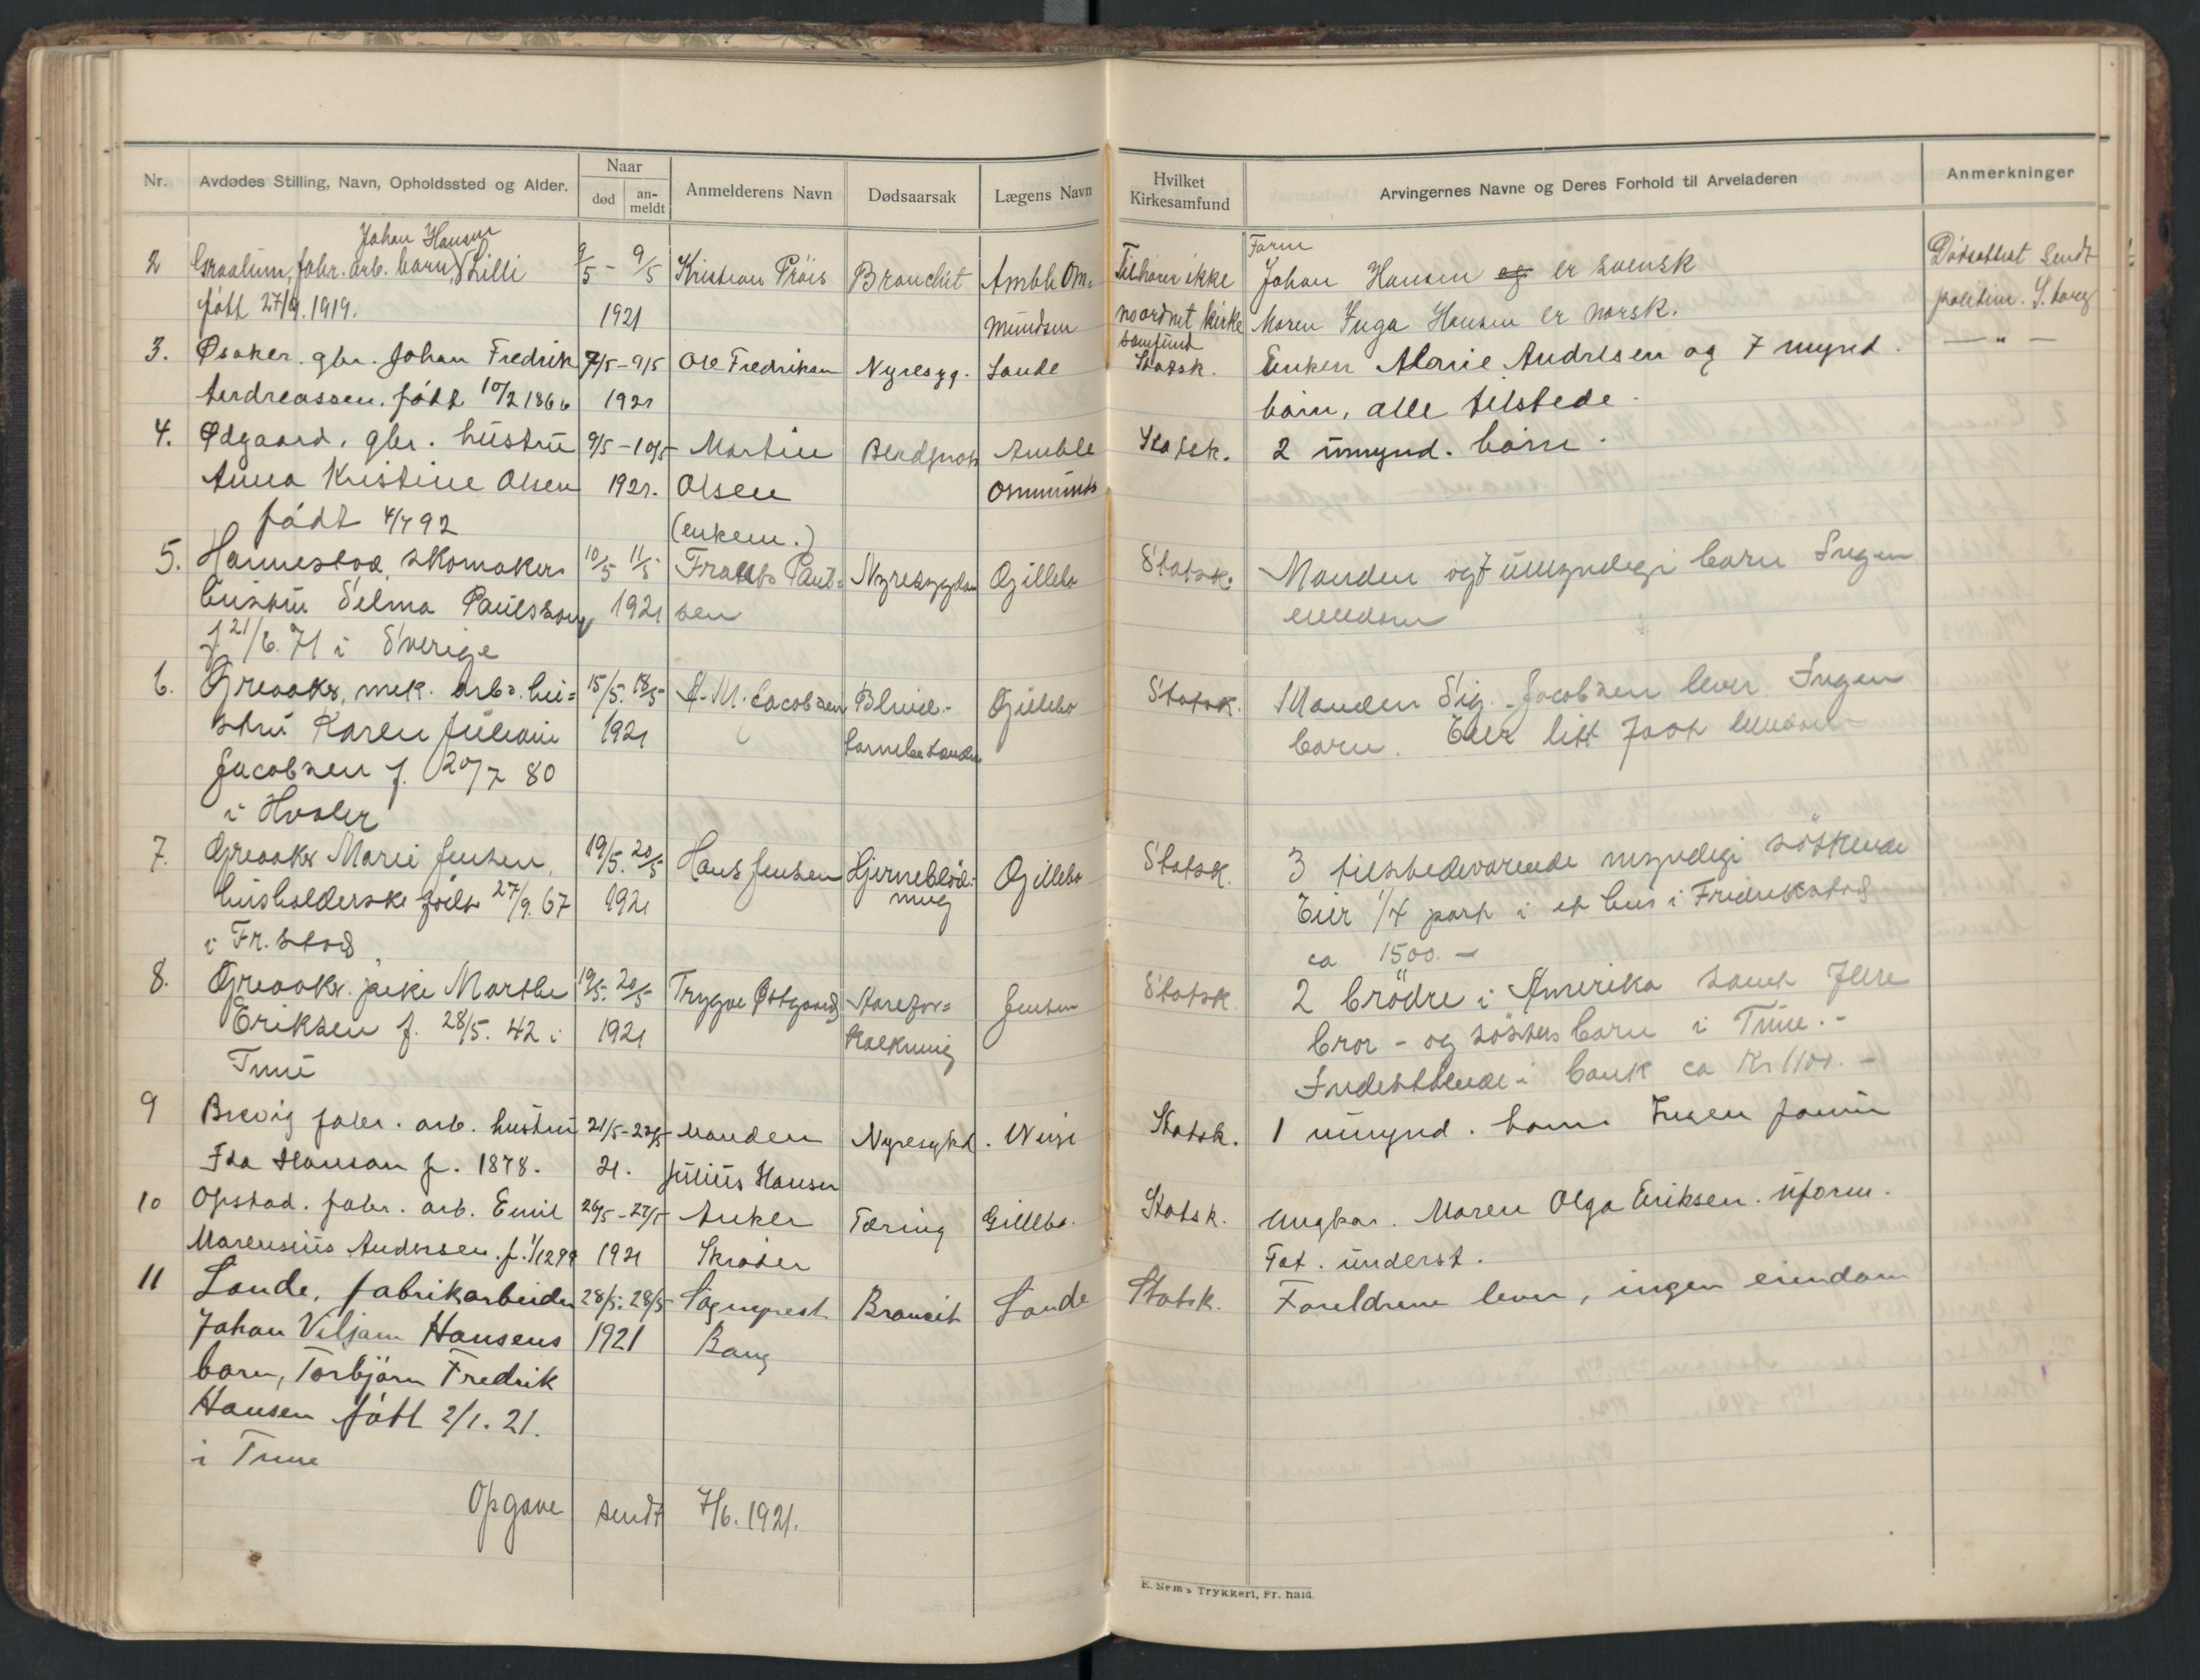 Nr.
Avdødes Stilling, Navn, Opholdssted og Alder.
Naar
død
an-
meldt
Anmelderens Navn
Dødsaarsak
Lægens Navn
Hvilket
Kirkesamfund
Arvingernes Navne og Deres Forhold til Arveladeren
Anmerkninger
Johan Hansen
2 Graalum, fabr. arb. barn, Lilli 9/5 - 9/5 Kristian Pröis Bronchit Amble Om=
født 27/9. 1919. 1921 mundsen
Tilhører ikke Johan Hansen og er svensk Dødsattest sendt
noordnet kirke Maren Inga Hansen er norsk.
samfund
3. Øsaker. gbr. Johan Fredrik 7/5-9/5 Ole Fredriksen Nyresyg. Sande Statsk. Enken Marie Andresen og 7 mynd. — " —
Andreassen. født 10/2 1866 1921 børn, alle tilstede.
4. Ødgaard. gbr. hustru 9/5-10/5 Martin Amble Statsk. 2 umynd. børn.
Anna Kristine Olsen 1921. Olsen
født 4/7 92 (enkem.)
5. Hannestad, skomakers 10/5 11/5 Nyresygdom Gillebo Statsk. Manden og 7 umyndige barn Ingen
hustru Selma Paulsson 1921 sen eiendom
f. 21/6. 71 i Sverige
6. Greaaker, mek. arb. hu= 15/5. 18/5 A. M. Jacobsen Gillebo Statsk. Manden Sig. Jacobsen lever. Ingen
stru Karen Juliane 1921 barn. Eier litt fast eiendom
Jacobsen f. 20/7 80
i Hvaler
7. Greaaker Marie Jensen, 19/5. 20/5 Hans Jensen Hjerneblød= Gillebo Statsk. 3 tilstedeværende myndige søskende
husholderske født 27/9. 67 1921 ning Eier 1/4 part i et hus i Fredrikstad
i Fr.stad ca 1500.-
8. Greaaker. pike Marthe 19/5. 20/5 Trygve Østgaard Aarefor= Jensen Statsk. 2 brödre i Amerika samt flere
Eriksen f. 28/5. 42 i 1921 kalkning bror- og søsters barn i Tune.-
Tune Indestående i bank ca Kr 1100.-
9 Brevig fabr. arb. hustru 21/5-23/5 Manden Nyresykd. Statsk. 1 umynd. barn. Ingen formue
Ida Hansen f. 1878. 21. Julius Hansen
10 Opstad. fabr. arb. Emil 26/5-27/5 Anker Tæring Gillebo. Statsk. Ungkar. Maren Olga Eriksen. uform.
Marensius Andersen. f. 1/12 99 1921 Skrøder Fat. underst.
11 Sande, fabrikarbeider 28/5. 28/5 Sogneprest Bronkit Sande Statsk. Foreldrene lever, ingen eiendom
Johan Viljam Hansens 1921 Bang
barn, Torbjørn Fredrik
Hansen født 2/1. 21.
i Tune
Opgave sendt 7/6. 1921.
E. Sem's Trykkeri, Fr. hald.